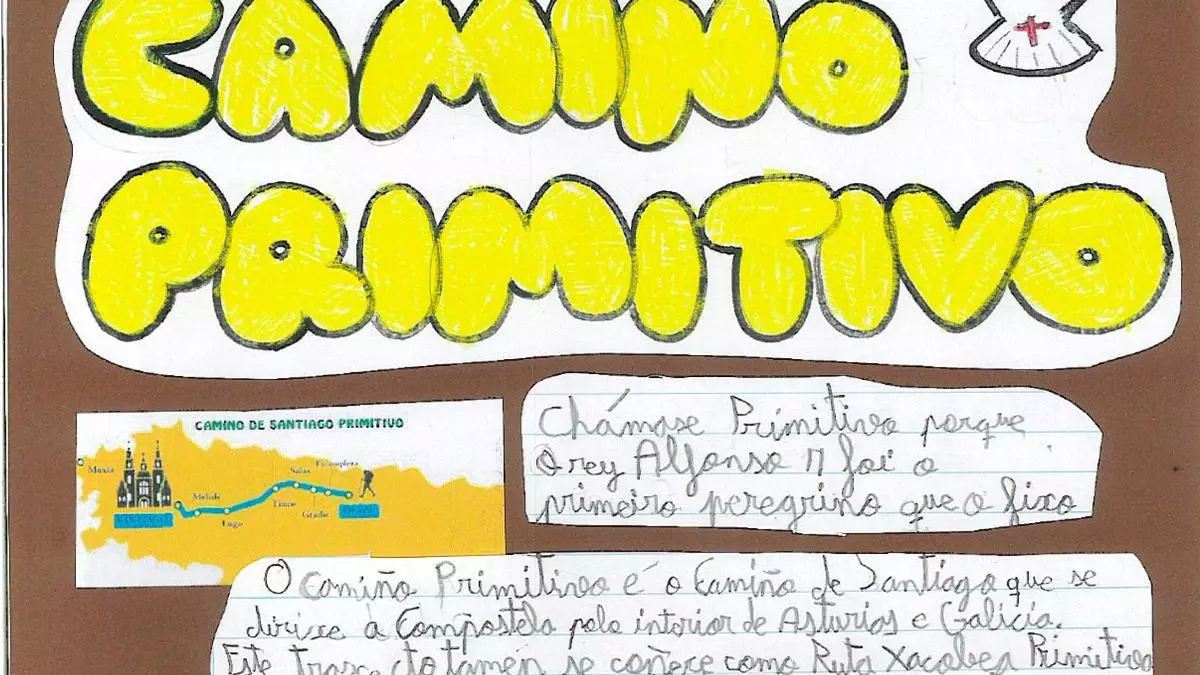 CAMINO
PRIMITIVO
CAMINO DE SANTIAGO PRIMITIVO
Muxía
Melide
Lugo
Tineo
Salas
Grado
SANTIAGO
Chámase Primitivo porque
O rey Alfonso II foi o
primeiro peregrino que o fixo
O Camiño Primitivo é o Camiño de Santiago que se
dirixe a Compostela polo interior de Asturias e Galicia.
Este traxecto tamén se coñece como Ruta Xacobea Primitiva